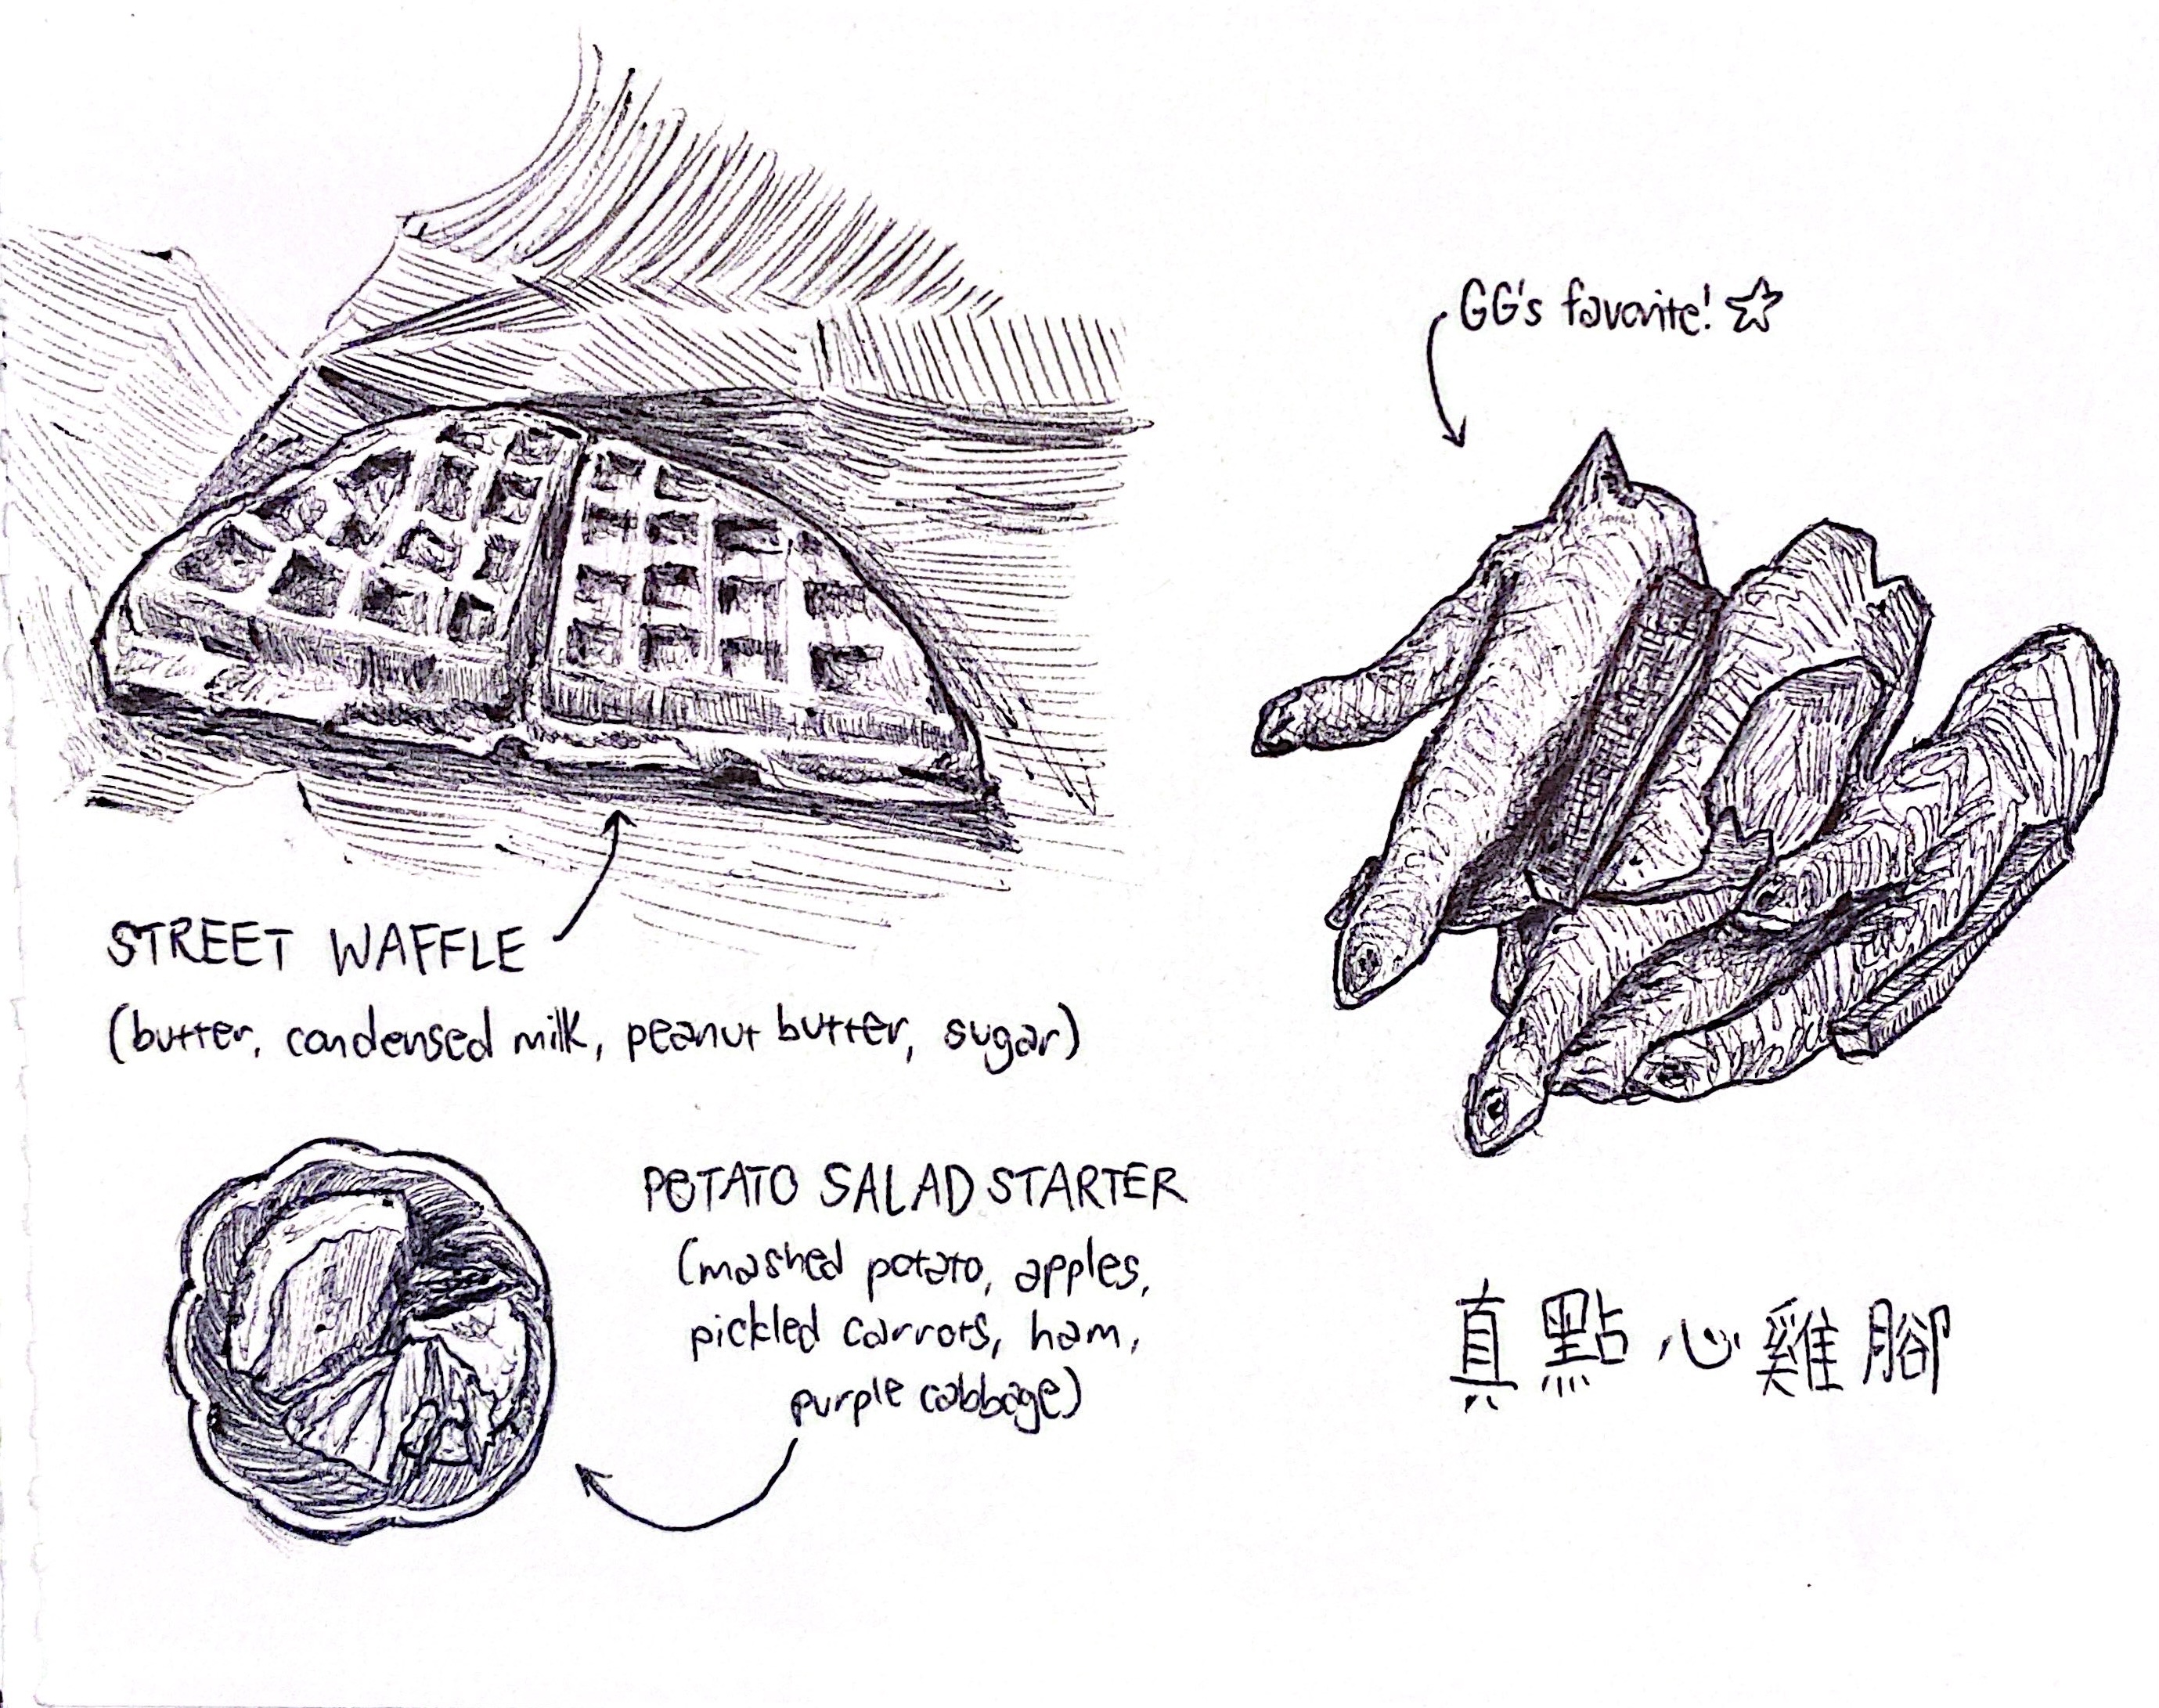 STREET WAFFLE
(butter, condensed milk, peanut butter, sugar)
POTATO SALAD STARTER
(mashed potato, apples,
pickled carrots, ham,
purple cabbage)
GG's favorite! ☆
真點心雞腳